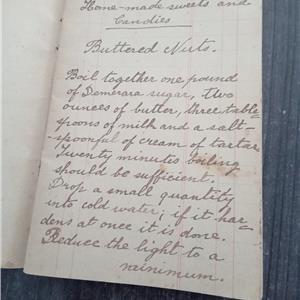 Home-made sweets and
Candies
Buttered Nuts.
Boil together one pound
of Demerara sugar, two
ounces of butter, three table-
spoons of milk and a salt-
-spoonful of cream of tartar
Twenty minutes boiling
should be sufficient.
Drop a small quantity
into cold water; if it har-
dens at once it is done.
Reduce the light to a
minimum.